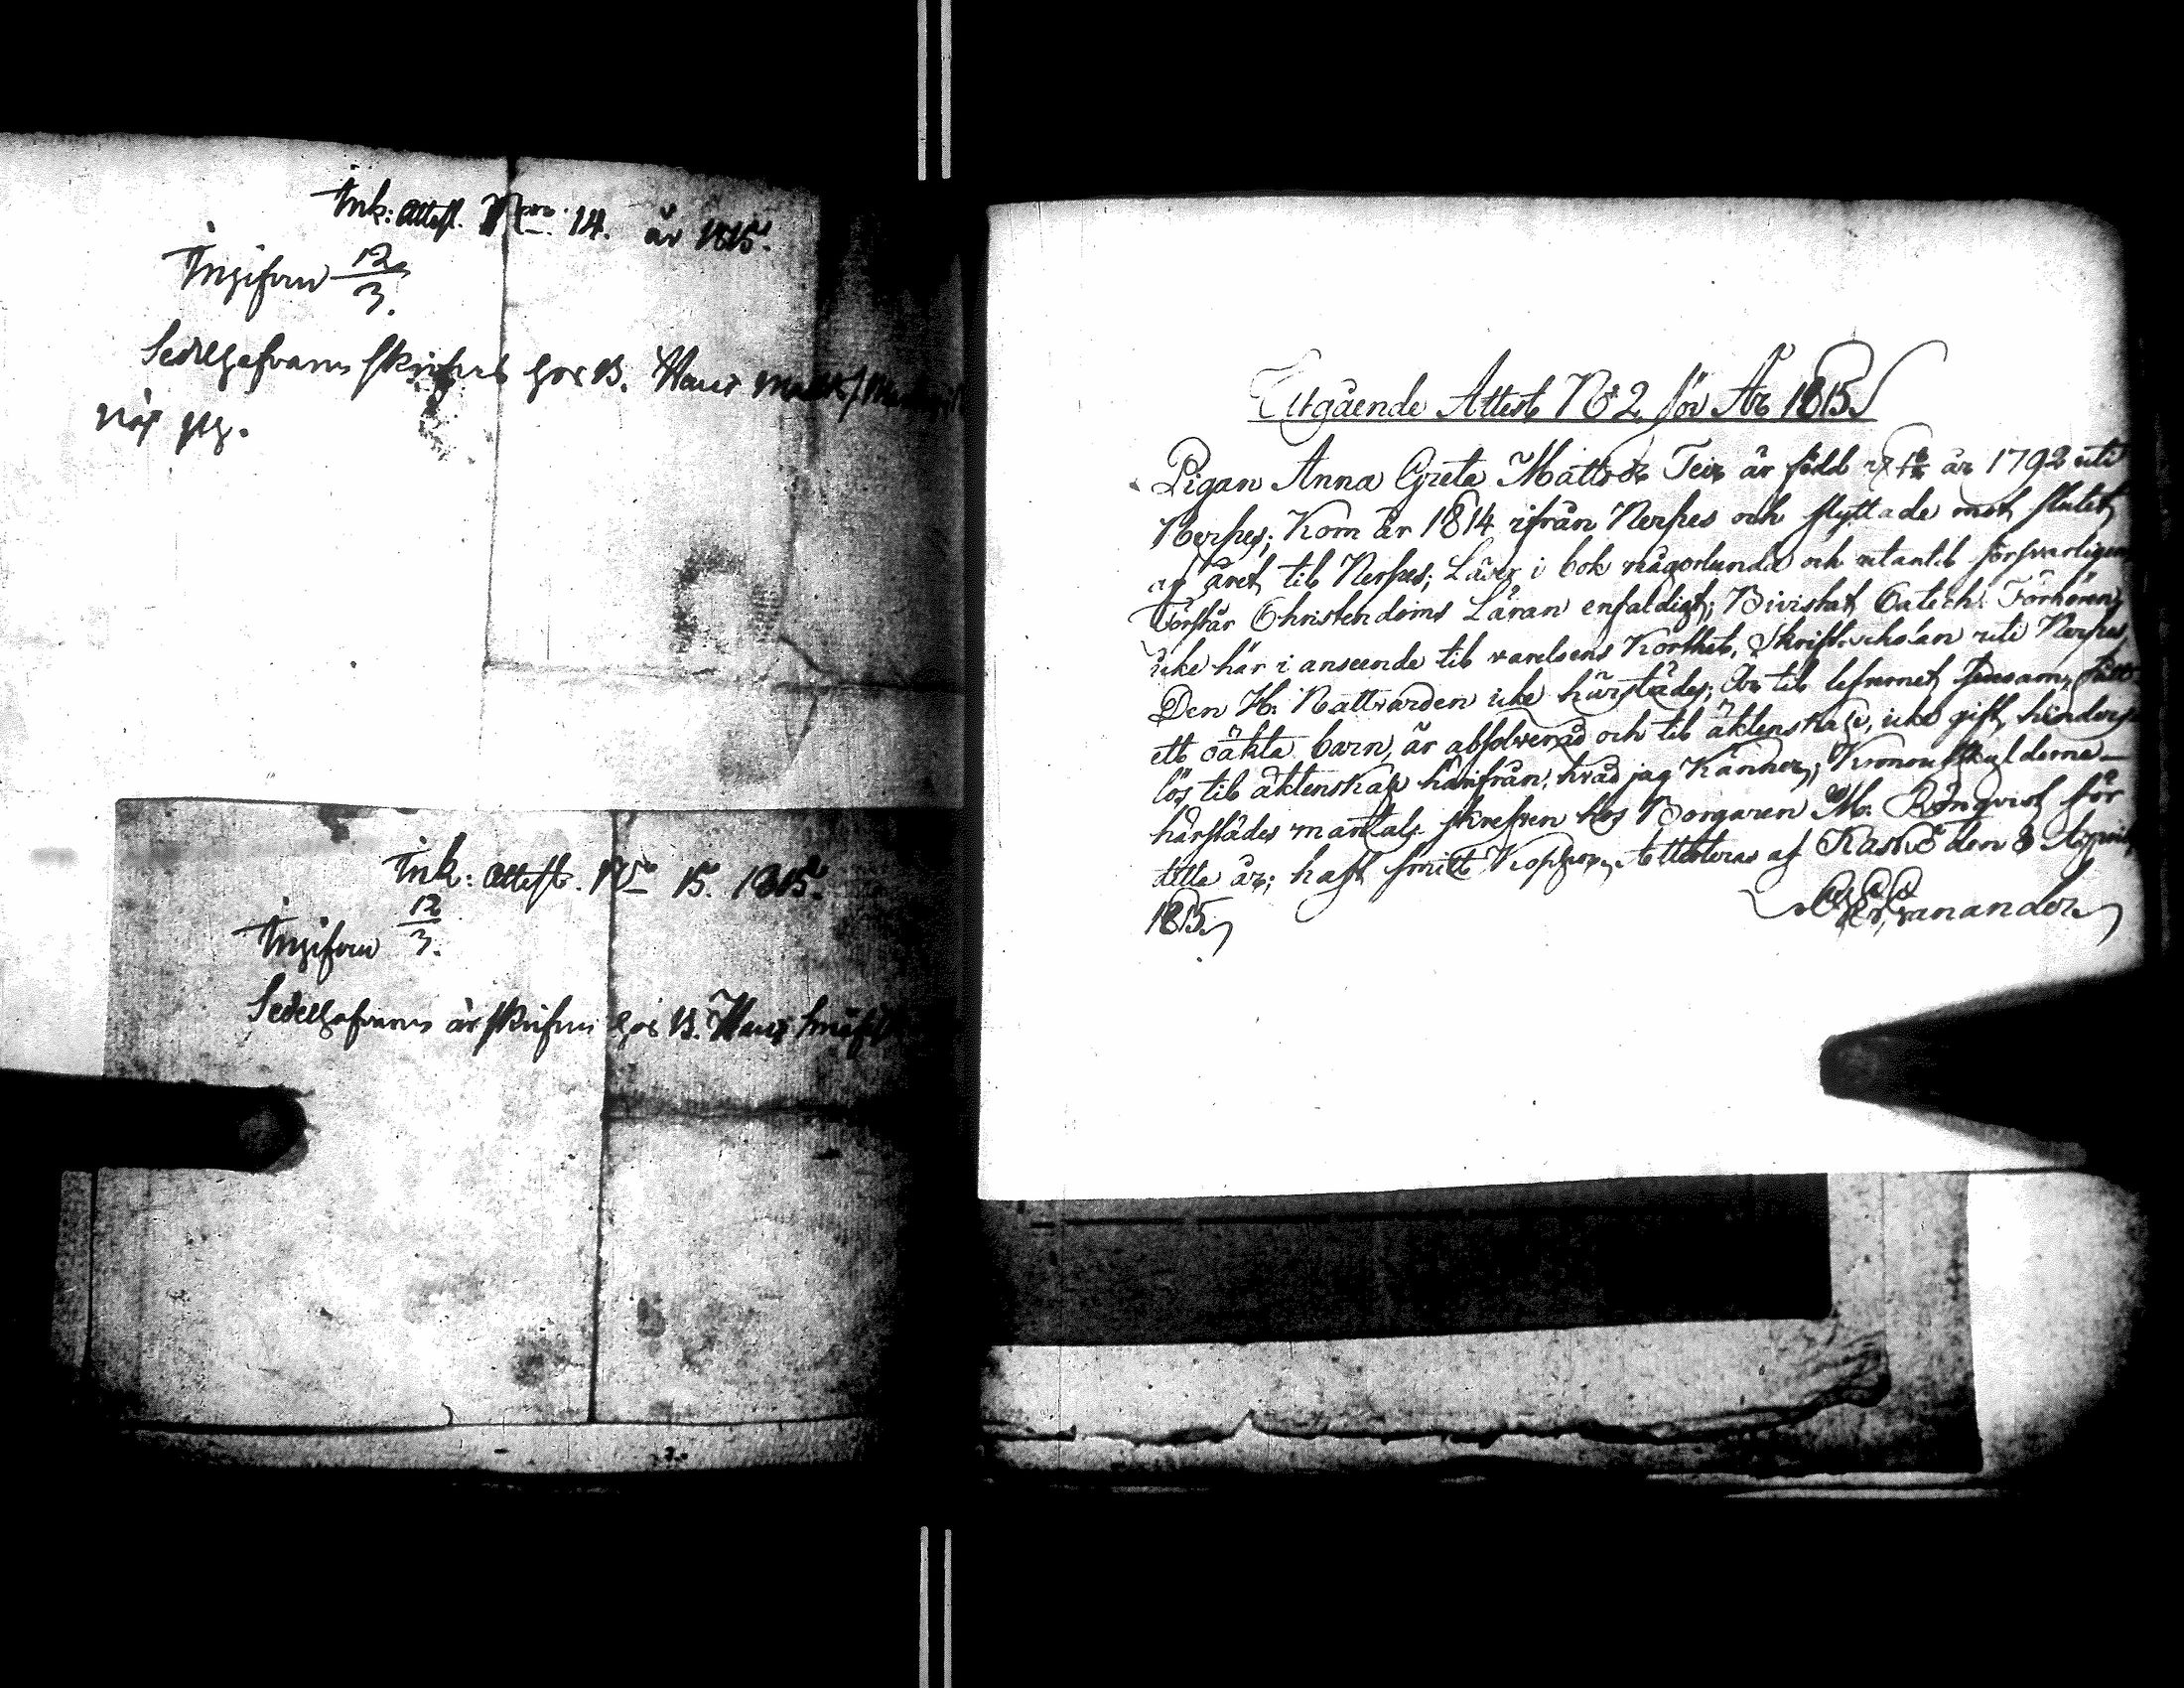 Ink: Attest. Nro. 14. år 1815.
Ingifven 12/3.
Sedelhafvaren skrifven hos B.
Ink: Attest. No 15. 1815.
Ingifven 12/3.
Sedelhafvaren är skrifven hos B.
Utgående Attest No 2 för År 1815
Pigan Anna Greta Mattsdr Teir är född år 1792 uti
Nerpes; Kom år 1814 ifrån Nerpes och flyttade mot slutet
af året til Nerpes; Läser i bok någorlunda och utantil försvarligen
Förstår Christendoms Läran enfaldigt; Bivistat Catech: Förhören
icke här i anseende til varelsens Korthet, Skriftscholan uti Nerpes,
Den H. Nattvarden icke härstädes; Är til lefvernet
ett oäkta barn, är absolverad och til äktenskap, icke gift, hinders
lös til äktenskap härifrån, hvad jag känner; Kronoutskylderne
härstädes mantals skrefven hos Borgaren M. Rönqvist för
detta år; haft Koppor, Attesteras af Kaskö den 8 April
1815.